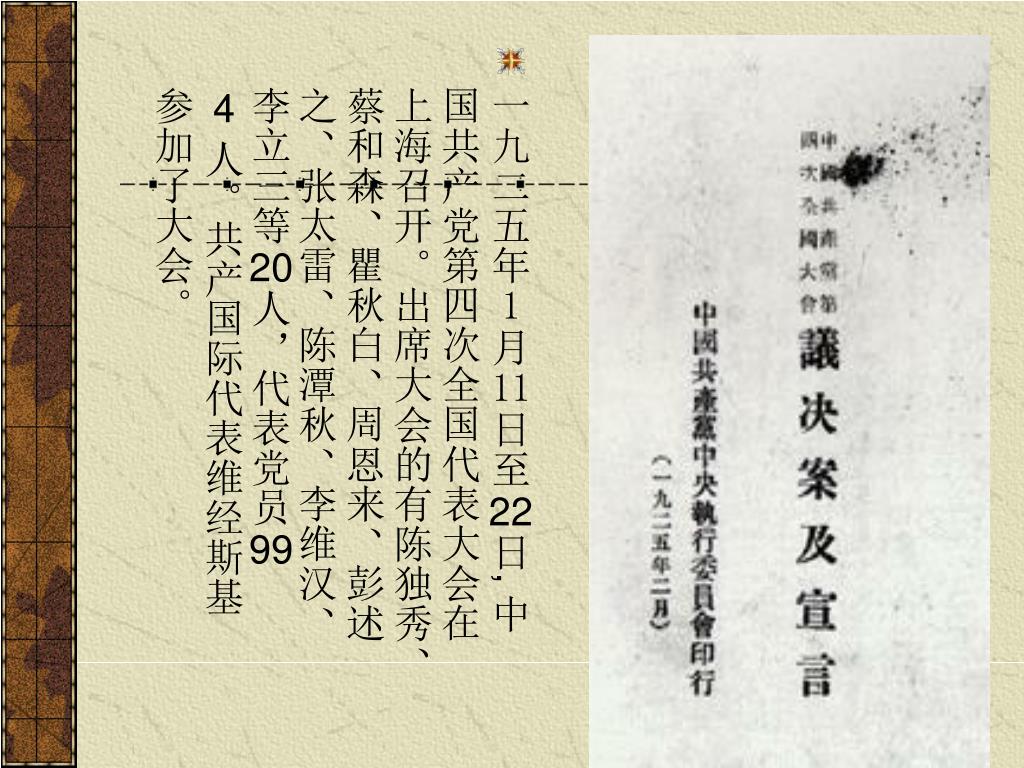 一九二五年1月11日至22日,中
国共产党第四次全国代表大会在
上海召开。出席大会的有陈独秀、
蔡和森、瞿秋白、周恩来、彭述
之、张太雷、陈潭秋、李维汉、
李立三等20人，代表党员99
4人。共产国际代表维经斯基
参加了大会。
中國共產黨第
四次全國大會
議决案及宣言
中國共產黨中央執行委員會印行
（一九二五年二月）